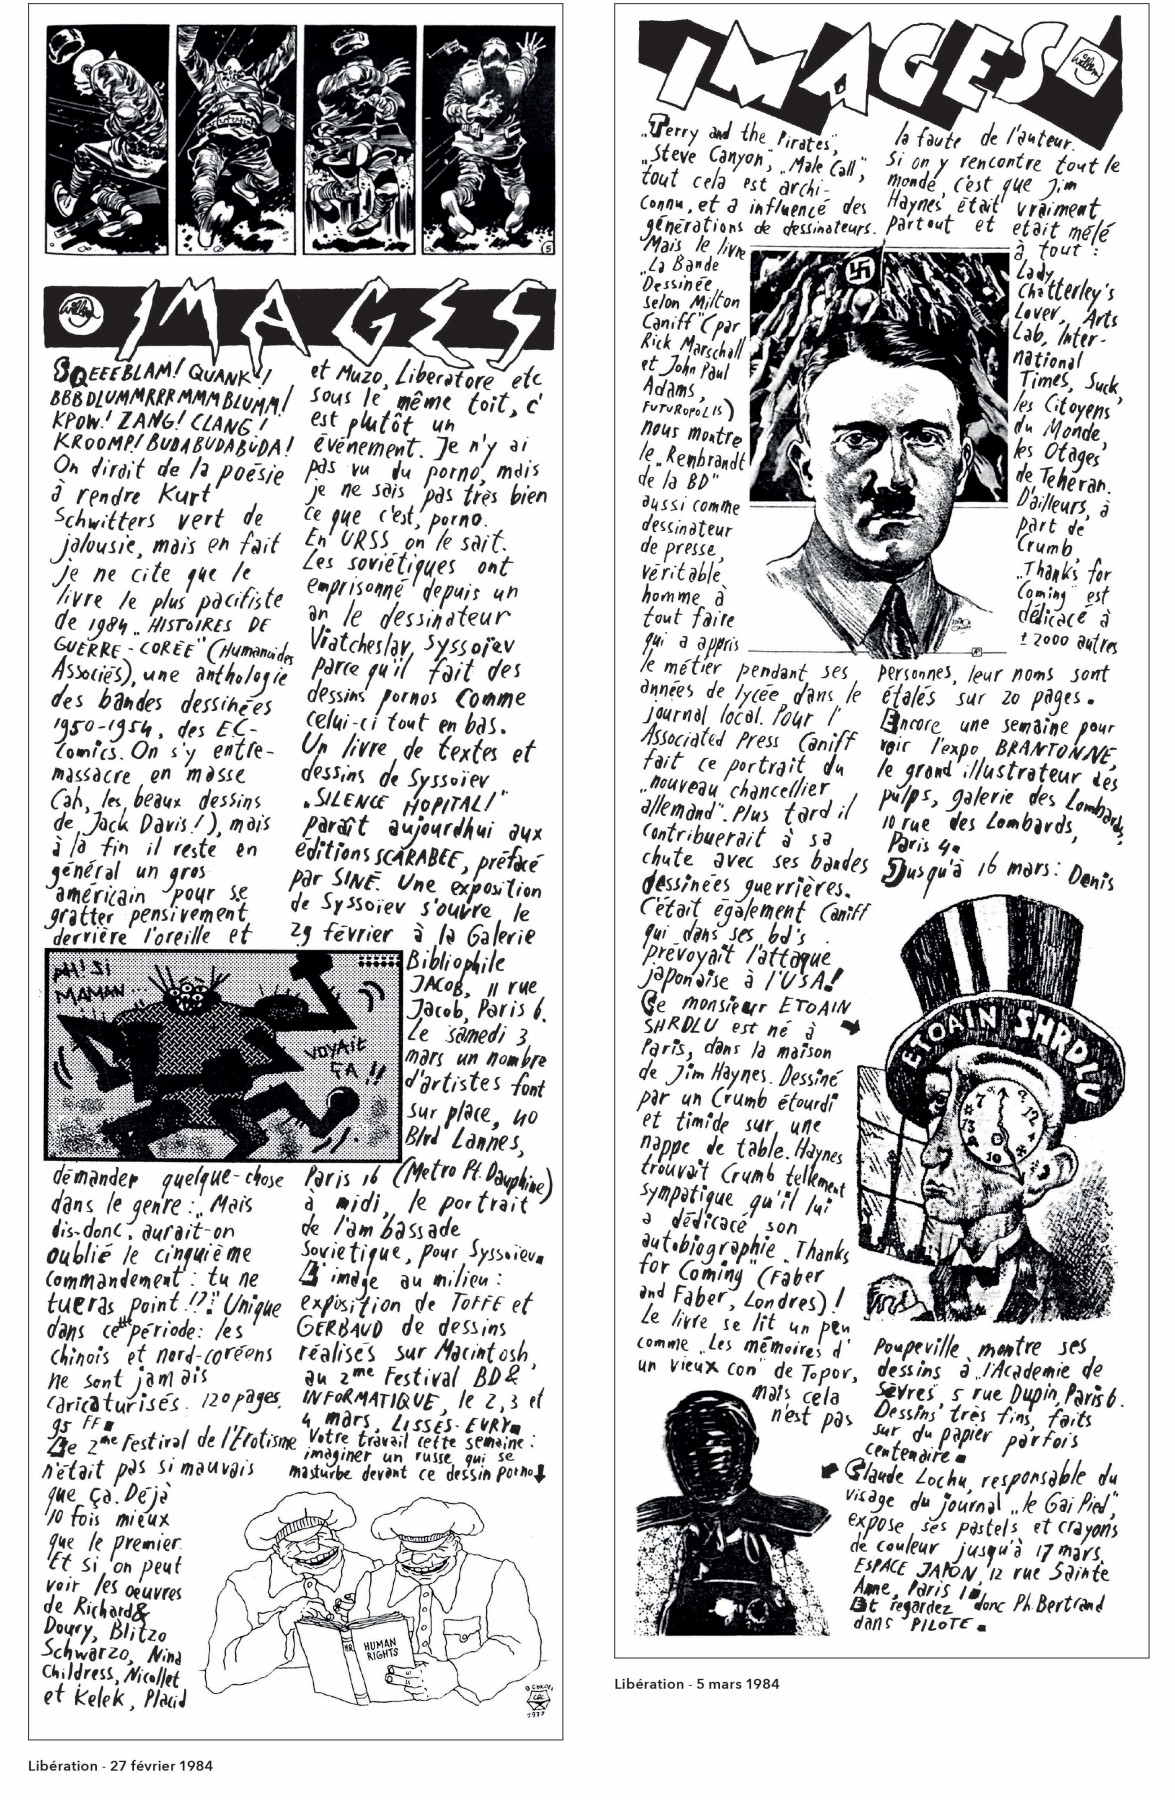 5
Willem
IMAGES
SQEEEBLAM! QUANK!
BBBDLUMMRRRMMMBLUMM!
KPOW! ZANG! CLANG!
KROOMP! BUDABUDABUDA!
On dirait de la poésie
à rendre Kurt
Schwitters vert de
jalousie, mais en fait
je ne cite que le
livre le plus pacifiste
de 1984 „HISTOIRES DE
GUERRE-CORÉE" (Humanoides
Associés), une anthologie
des bandes dessinées
1950-1954, des EC-
Comics. On s'y entre-
massacre en masse
(ah, les beaux dessins
de Jack Davis!), mais
à la fin il reste en
général un gros
américain pour se
gratter pensivement
derrière l'oreille et
AH! SI
MAMAN...
VOYAIT
ÇA!!
demander quelque-chose
dans le genre: „Mais
dis-donc, aurait-on
oublié le cinquième
commandement: tu ne
tueras point!?!" Unique
dans cette période: les
chinois et nord-coréens
ne sont jamais
caricaturisés. 120 pages,
95 FF
Le 2me Festival de l'Erotisme
n'était pas si mauvais
que ça. Déjà
10 fois mieux
que le premier.
Et si on peut
voir les œuvres
de Richard &
Doury, Blitzo
Schwarzo, Nina
Childress, Nicollet
et Kelek, Placid
et Muzo, Liberatore etc
sous le même toit, c'
est plutôt un
événement. Je n'y ai
pas vu du porno, mais
je ne sais pas très bien
ce que c'est, porno.
En URSS on le sait.
Les soviétiques ont
emprisonné depuis un
an le dessinateur
Viatcheslav Syssoïev
parce qu'il fait des
dessins pornos comme
celui-ci tout en bas.
Un livre de textes et
dessins de Syssoïev
„SILENCE HOPITAL!"
paraît aujourdhui aux
éditions SCARABÉE, préfacé
par SINÉ. Une exposition
de Syssoïev s'ouvre le
29 février à la Galerie
Bibliophile
JACOB, 11 rue
Jacob, Paris 6.
Le samedi 3
mars un nombre
d'artistes font
sur place, 40
Blvd Lannes,
Paris 16 (Metro Pt. Dauphine)
à midi, le portrait
de l'ambassade
Sovietique, pour Syssoïev
L'image au milieu:
exposition de TOFFE et
GERBAUD de dessins
réalisés sur Macintosh,
au 2me Festival BD&
INFORMATIQUE, le 2, 3 et
4 mars, LISSES-EVRY
Votre travail cette semaine:
imaginer un russe qui se
masturbe devant ce dessin porno
HUMAN
RIGHTS
1977
Libération - 27 février 1984
IMAGES
Willem
„Terry and the Pirates",
„Steve Canyon", „Male Call",
tout cela est archi-
connu, et a influencé des
générations de dessinateurs.
Mais le livre
„La Bande
Dessinée
selon Milton
Caniff" (par
Rick Marschall
et John Paul
Adams,
FUTUROPOLIS)
nous montre
le „Rembrandt
de la BD"
aussi comme
dessinateur
de presse,
véritable
homme à
tout faire
qui a appris
le métier pendant ses
années de lycée dans le
journal local. Pour l'
Associated Press Caniff
fait ce portrait du
„nouveau chancellier
allemand". Plus tard il
contribuerait à sa
chute avec ses bandes
dessinées guerrières.
C'était également Caniff
qui dans ses bd's
prévoyait l'attaque
japonaise à l'USA!
Ce monsieur ETOAIN
SHRDLU est né à
Paris, dans la maison
de Jim Haynes. Dessiné
par un Crumb étourdi
et timide sur une
nappe de table. Haynes
trouvait Crumb tellement
sympatique qu'il lui
a dédicacé son
autobiographie „Thanks
for Coming" (Faber
and Faber, Londres)!
Le livre se lit un peu
comme „Les mémoires d'
un vieux con" de Topor,
mais cela
n'est pas
la faute de l'auteur.
Si on y rencontre tout le
monde, c'est que Jim
Haynes était vraiment
partout et etait mélé
à tout:
Lady
Chatterley's
Lover, Arts
Lab, Inter-
national
Times, Suck,
les Citoyens
du Monde,
les Otages
de Teheran.
D'ailleurs, à
part de
Crumb,
„Thanks for
Coming" est
dédicacé à
± 2000 autres
personnes, leur noms sont
étalés sur 20 pages.
Encore une semaine pour
voir l'expo BRANTONNE,
le grand illustrateur des
pulps, galerie des Lombards,
10 rue des Lombards,
Paris 4
Jusqu'à 16 mars: Denis
ETOAIN SHRDLU
Poupeville montre ses
dessins à l'Academie de
Sèvres, 5 rue Dupin, Paris 6.
Dessins très fins, faits
sur du papier parfois
centenaire
Claude Lochu, responsable du
visage du journal „le Gai Pied",
expose ses pastels et crayons
de couleur jusqu'à 17 mars,
ESPACE JAPON, 12 rue Sainte
Anne, Paris 1
Et regardez donc Ph. Bertrand
dans PILOTE.
Libération - 5 mars 1984